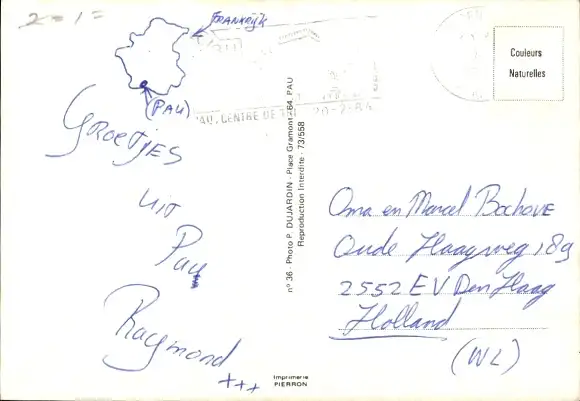 2 - 1 =
FRANKRijk
(PAU)
GROETJES
uit
Pau
Raymond
+++
PAU. CENTRE DE
nº 36 - Photo P. DUJARDIN - Place Gramont 64. PAU
Reproduction Interdite - 73/558
Imprimerie
PIERRON
Couleurs
Naturelles
Oma en Marcel Bochove
Oude Haagweg 189
2552 EV Den Haag
Holland
(NL)